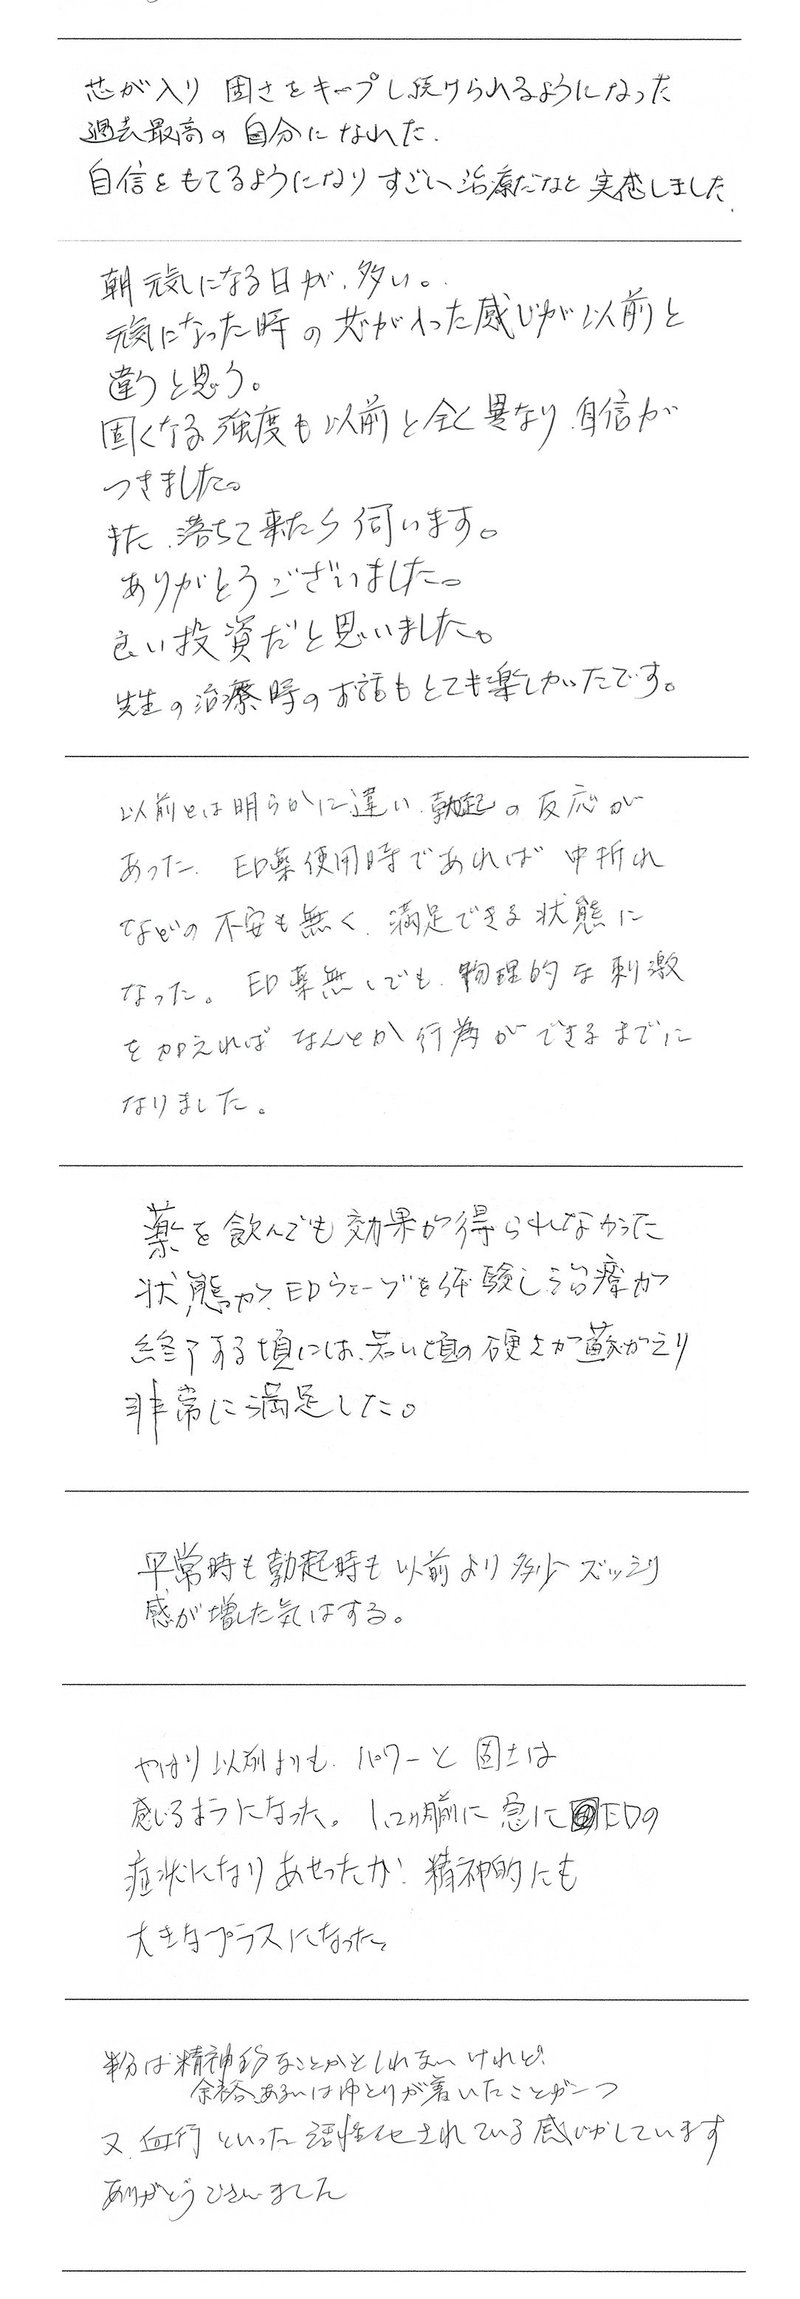 芯が入り 固さをキープし続けられるようになった
過去最高の自分になれた.
自信をもてるようになり すごい治療だなと 実感しました.
朝元気になる日が、多い。
元気になった時の芯が入った感じが以前と
違うと思う。
固くなる強度も以前と全く異なり、自信が
つきました。
また、落ちて来たら伺います。
ありがとうございました。
良い投資だと思いました。
先生の治療時のお話もとても楽しかったです。
以前とは明らかに違い、勃起の反応が
あった。ED薬使用時であれば 中折れ
などの不安も無く、満足できる状態に
なった。ED薬無しでも、物理的な刺激
を加えれば なんとか行為ができるまでに
なりました。
薬を飲んでも効果が得られなかった
状態が、EDウェーブを体験し治療が
終了する頃には、若い頃の硬さが蘇がえり
非常に満足した。
平常時も勃起時も以前より多少ズッシリ
感が増した気はする。
やはり以前よりも、パワーと固さは
感じるようになった。1、2ヶ月前に 急にEDの
症状になりあせったが、精神的にも
大きなプラスになった。
半分は精神的なことかもしれないけれど、
余裕、あるいはゆとりが着いたことが一つ
又、血行といった活性化されている感じがしています
ありがとうございました